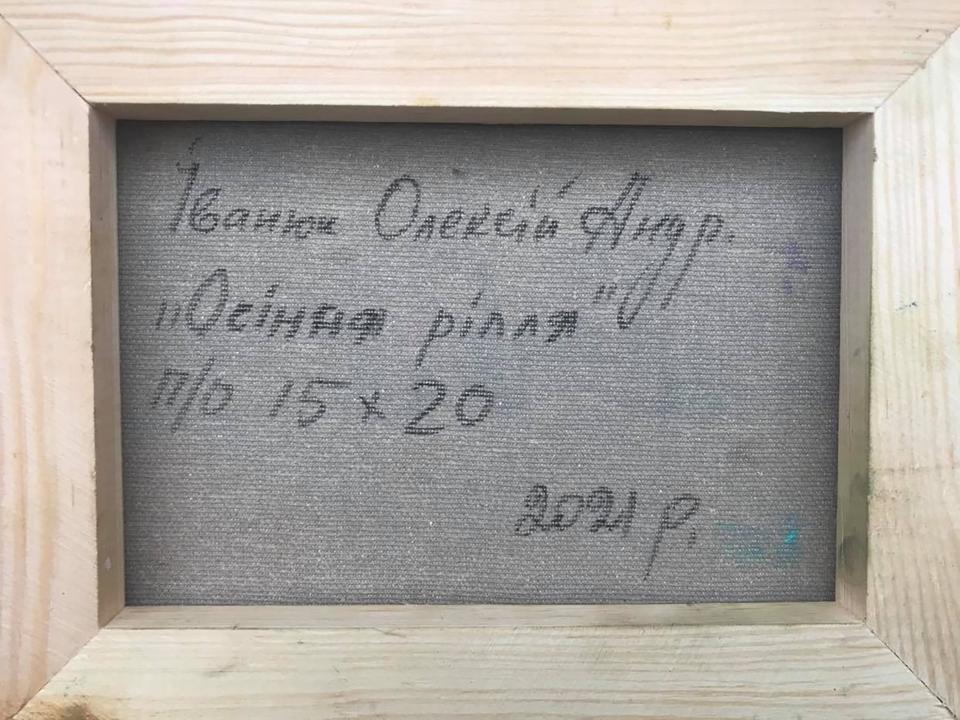 Іванюк Олексій Андр.
"Осіння рілля"
п/о 15 х 20
2021 р.